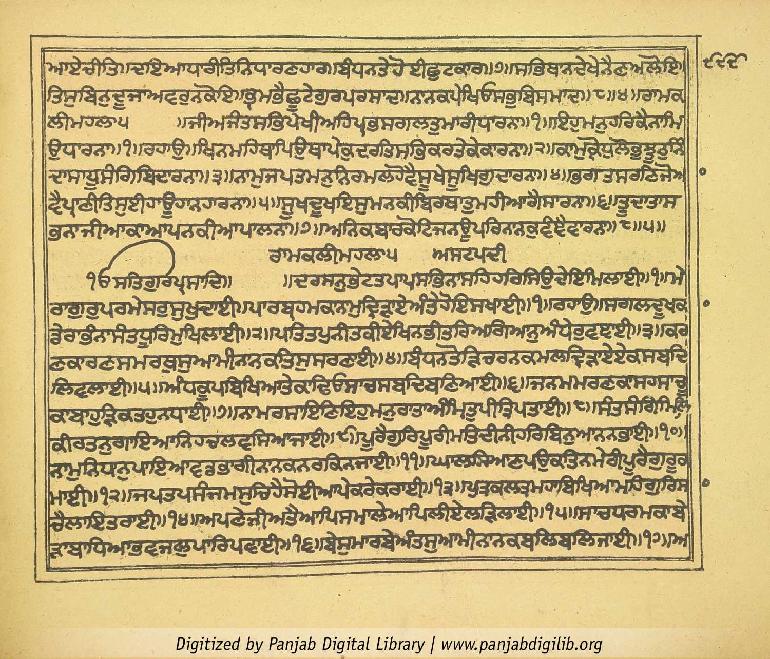 ਆਏਚੀਤਿ॥ਦਇਆਧਾਰੀਤਿਨਿਧਾਰਣਹਾਰ॥ਬੰਧਨਤੇਹੋਈਛੁਟਕਾਰ॥੭॥ਸਭਿਥਾਨਦੇਖੇਨੈਣਅਲੋਇ॥
ਤਿਸੁਬਿਨੁਦੂਜਾਅਵਰੁਨਕੋਇ॥ਭ੍ਰਮਭੈਛੂਟੇਗੁਰਪਰਸਾਦ॥ਨਾਨਕਪੇਖਿਓਸਭੁਬਿਸਮਾਦ॥੮॥੪॥ਰਾਮਕ
ਲੀਮਹਲਾ੫ ॥ਜੀਅਜੰਤਸਭਿਪੇਖੀਅਹਿਪ੍ਰਭਸਗਲਤੁਮਾਰੀਧਾਰਨਾ॥੧॥ਇਹੁਮਨੁਹਰਿਕੈਨਾਮਿ
ਉਧਾਰਨਾ॥੧॥ਰਹਾਉ॥ਖਿਨਮਹਿਥਾਪਿਉਥਾਪੇਕੁਦਰਤਿਸਭਿਕਰਤੇਕੇਕਾਰਨਾ॥੨॥ਕਾਮੁਕ੍ਰੋਧੁਲੋਭੁਝੂਠੁਨਿੰ
ਦਾਸਾਧੂਸੰਗਿਬਿਦਾਰਨਾ॥੩॥ਨਾਮੁਜਪਤਮਨੁਨਿਰਮਲਹੋਵੈਸੂਖੇਸੂਖਿਗੁਦਾਰਨਾ॥੪॥ਭਗਤਸਰਣਿਜੋਆ
ਵੈਪ੍ਰਾਣੀਤਿਸੁਈਹਾਊਹਾਨਹਾਰਨਾ॥੫॥ਸੂਖਦੂਖਇਸੁਮਨਕੀਬਿਰਥਾਤੁਮਹੀਆਗੈਸਾਰਨਾ॥੬॥ਤੂਦਾਤਾਸ
ਭਨਾਜੀਆਕਾਆਪਨਕੀਆਪਾਲਨਾ॥੭॥ਅਨਿਕਬਾਰਕੋਟਿਜਨਊਪਰਿਨਾਨਕੁਵੰਞੈਵਾਰਨਾ॥੮॥੫॥
ਰਾਮਕਲੀਮਹਲਾ੫ ਅਸਟਪਦੀ
ੴਸਤਿਗੁਰਪ੍ਰਸਾਦਿ॥ ॥ਦਰਸਨੁਭੇਟਤਪਾਪਸਭਿਨਾਸਹਿਹਰਿਸਿਉਦੇਇਮਿਲਾਈ॥੧॥ਮੇ
ਰਾਗੁਰੁਪਰਮੇਸਰੁਸੁਖਦਾਈ॥ਪਾਰਬ੍ਰਹਮਕਾਨਾਮੁਦ੍ਰਿੜਾਏਅੰਤੇਹੋਇਸਖਾਈ॥੧॥ਰਹਾਉ॥ਸਗਲਦੂਖਕਾ
ਡੇਰਾਭੰਨਾਸੰਤਧੂਰਿਮੁਖਿਲਾਈ॥੨॥ਪਤਿਤਪੁਨੀਤਕੀਏਖਿਨਭੀਤਰਿਅਗਿਆਨੁਅੰਧੇਰੁਵੰਞਾਈ॥੩॥ਕਰ
ਣਕਾਰਣਸਮਰਥੁਸੁਆਮੀਨਾਨਕਤਿਸੁਸਰਣਾਈ॥੪॥ਬੰਧਨਤੋੜਿਚਰਨਕਮਲਦ੍ਰਿੜਾਏਏਕਸਬਦਿ
ਲਿਵਲਾਈ॥੫॥ਅੰਧਕੂਪਬਿਖਿਆਤੇਕਾਢਿਓਸਾਚਸਬਦਿਬਣਿਆਈ॥੬॥ਜਨਮਮਰਣਕਾਸਹਸਾਚੂ
ਕਾਬਾਹੁੜਿਕਤਹੁਨਧਾਈ॥੭॥ਨਾਮਰਸਾਇਣਿਇਹੁਮਨੁਰਾਤਾਅੰਮ੍ਰਿਤੁਪੀਤ੍ਰਿਪਤਾਈ॥੮॥ਸੰਤਸੰਗਿਮਿਲਿ
ਕੀਰਤਨੁਗਾਇਆਨਿਹਚਲਵਸਿਆਜਾਈ॥੯॥ਪੂਰੈਗੁਰਿਪੂਰੀਮਤਿਦੀਨੀਹਰਿਬਿਨੁਆਨਨਭਾਈ॥੧੦॥
ਨਾਮੁਨਿਧਾਨੁਪਾਇਆਵਡਭਾਗੀਨਾਨਕਨਰਕਿਨਜਾਈ॥੧੧॥ਘਾਲਸਿਆਣਪਉਕਤਿਨਮੇਰੀਪੂਰੈਗੁਰੂਕ
ਮਾਈ॥੧੨॥ਜਪਤਪਸੰਜਮਸੁਚਿਹੈਸੋਈਆਪੇਕਰੇਕਰਾਈ॥੧੩॥ਪੁਤ੍ਰਕਲਤ੍ਰਮਹਾਬਿਖਿਆਮਹਿਗੁਰਿਸਾ
ਚੈਲਾਇਤਰਾਈ॥੧੪॥ਅਪਣੇਜੀਅਤੈਆਪਿਸਮਾਲੇਆਪਿਲੀਏਲੜਿਲਾਈ॥੧੫॥ਸਾਚਧਰਮਕਾਬੇ
ੜਾਬਾਂਧਿਆਭਵਜਲੁਪਾਰਿਪਵਾਈ॥੧੬॥ਬੇਸੁਮਾਰਬੇਅੰਤਸੁਆਮੀਨਾਨਕਬਲਿਬਲਿਜਾਈ॥੧੭॥ਅ
Digitized by Panjab Digital Library | www.panjabdigilib.org